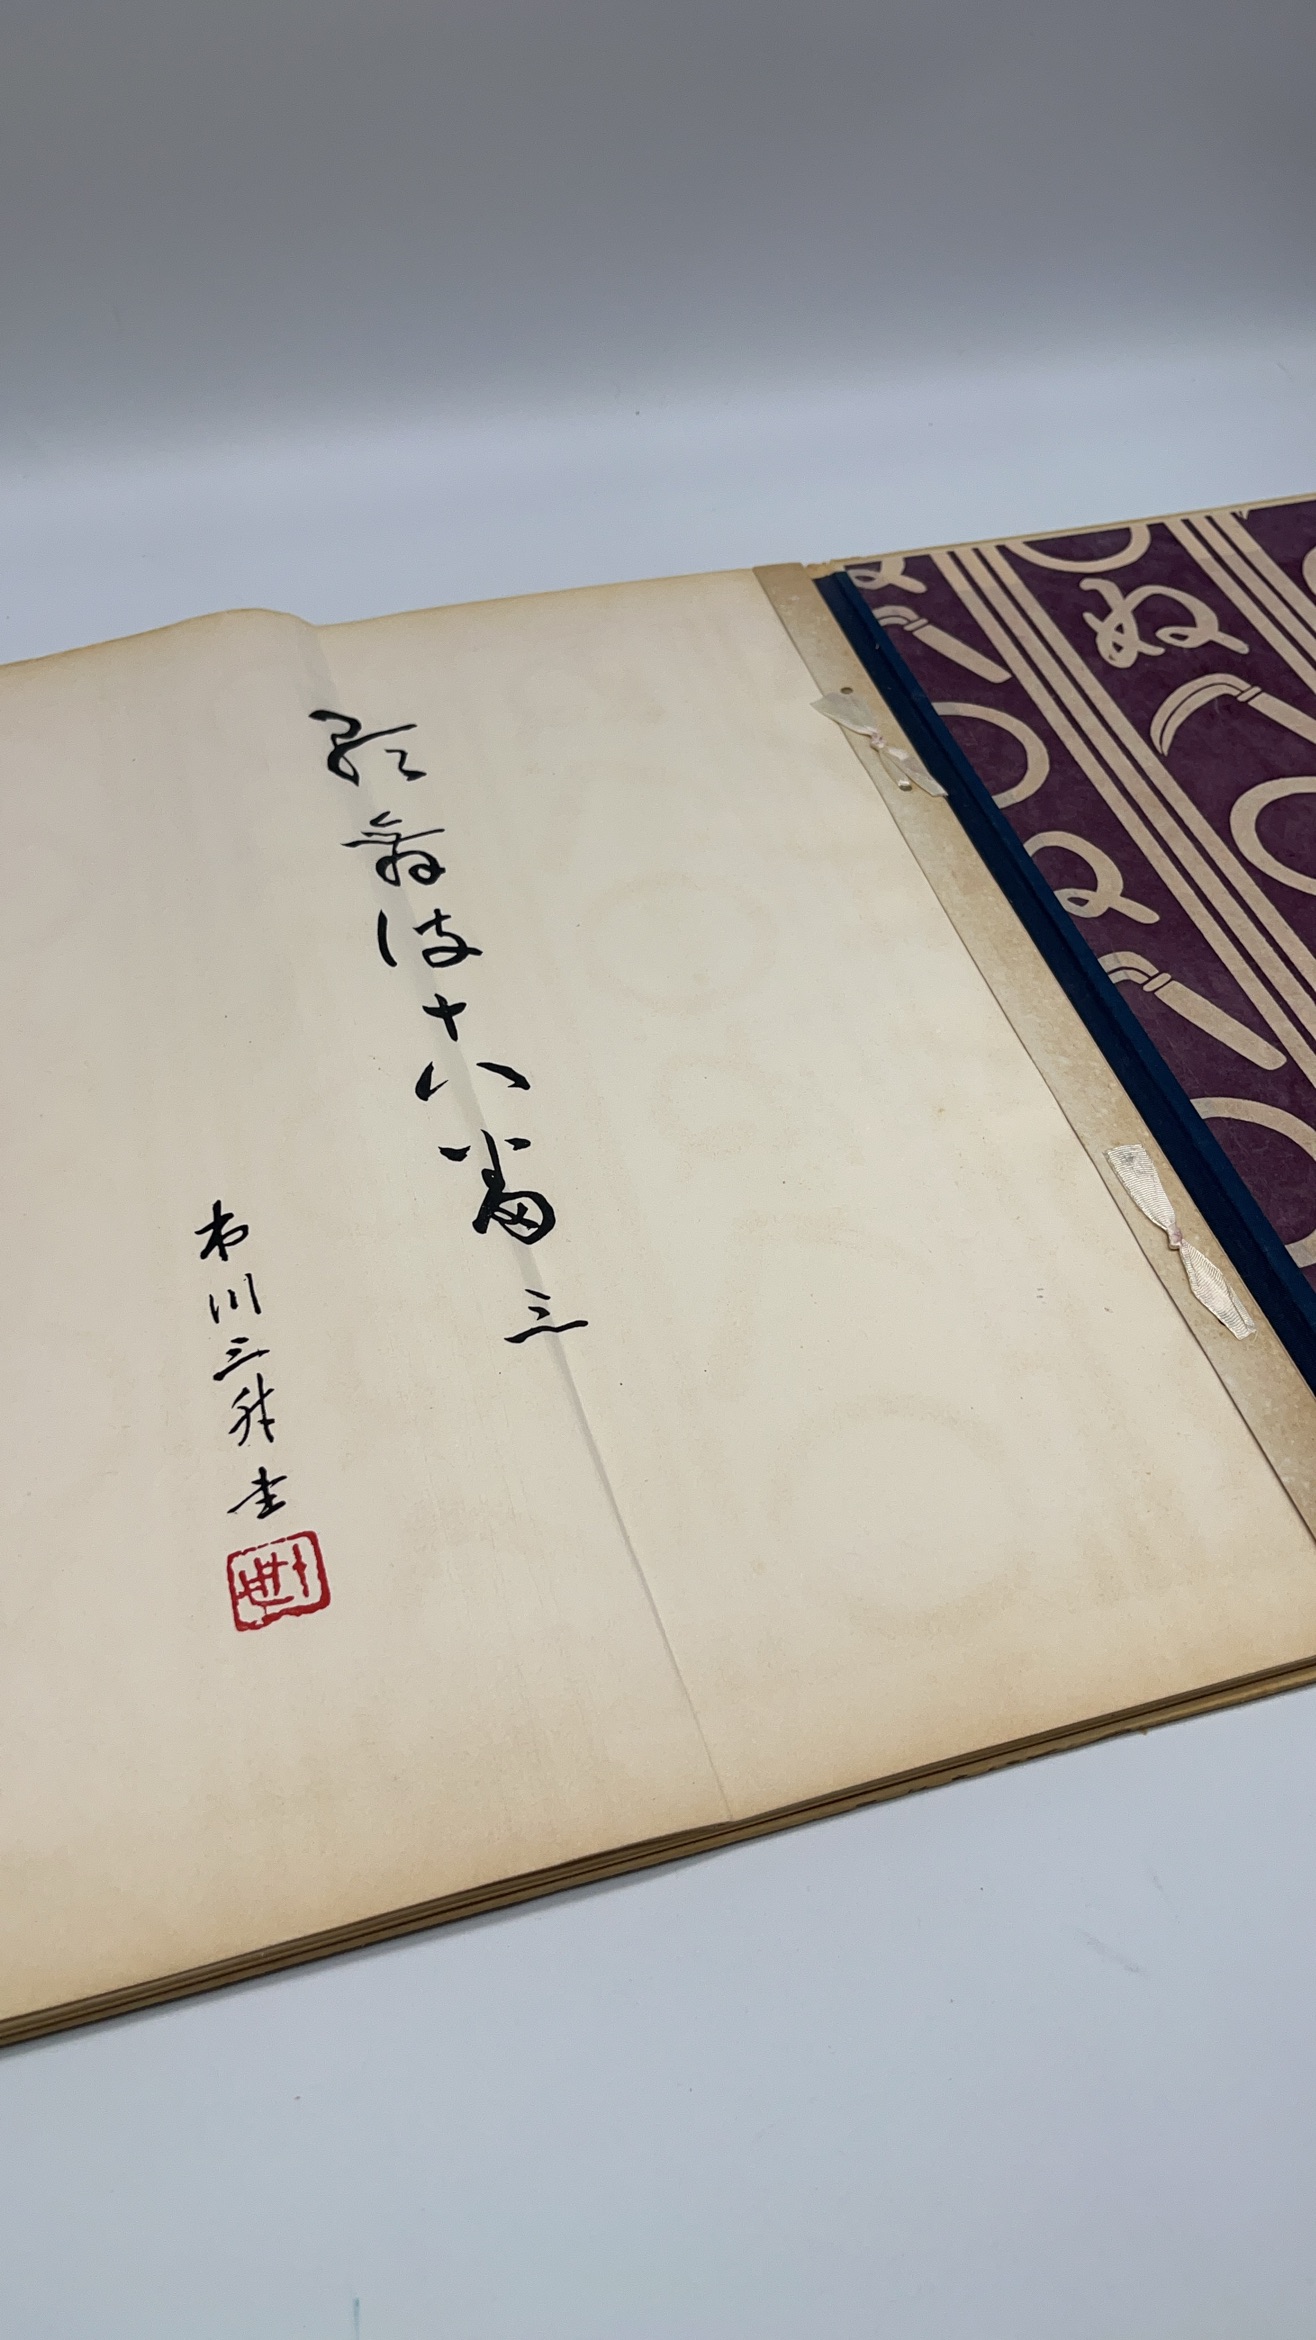 歌舞伎十八番 三
市川三升書
ぬ